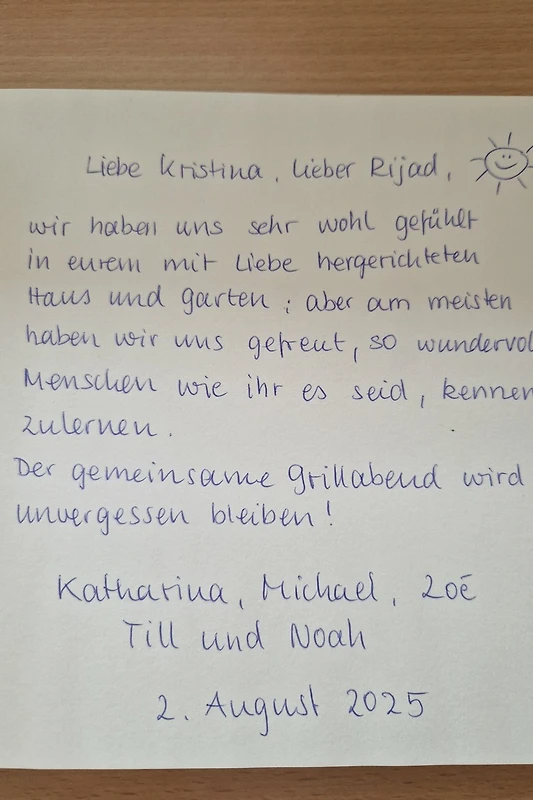 Liebe Kristina, lieber Rijad,
wir haben uns sehr wohl gefühlt
in eurem mit Liebe hergerichteten
Haus und Garten; aber am meisten
haben wir uns gefreut, so wundervol
Menschen wie ihr es seid, kennen
zulernen.
Der gemeinsame Grillabend wird
unvergessen bleiben!
Katharina, Michael, Zoé
Till und Noah
2. August 2025